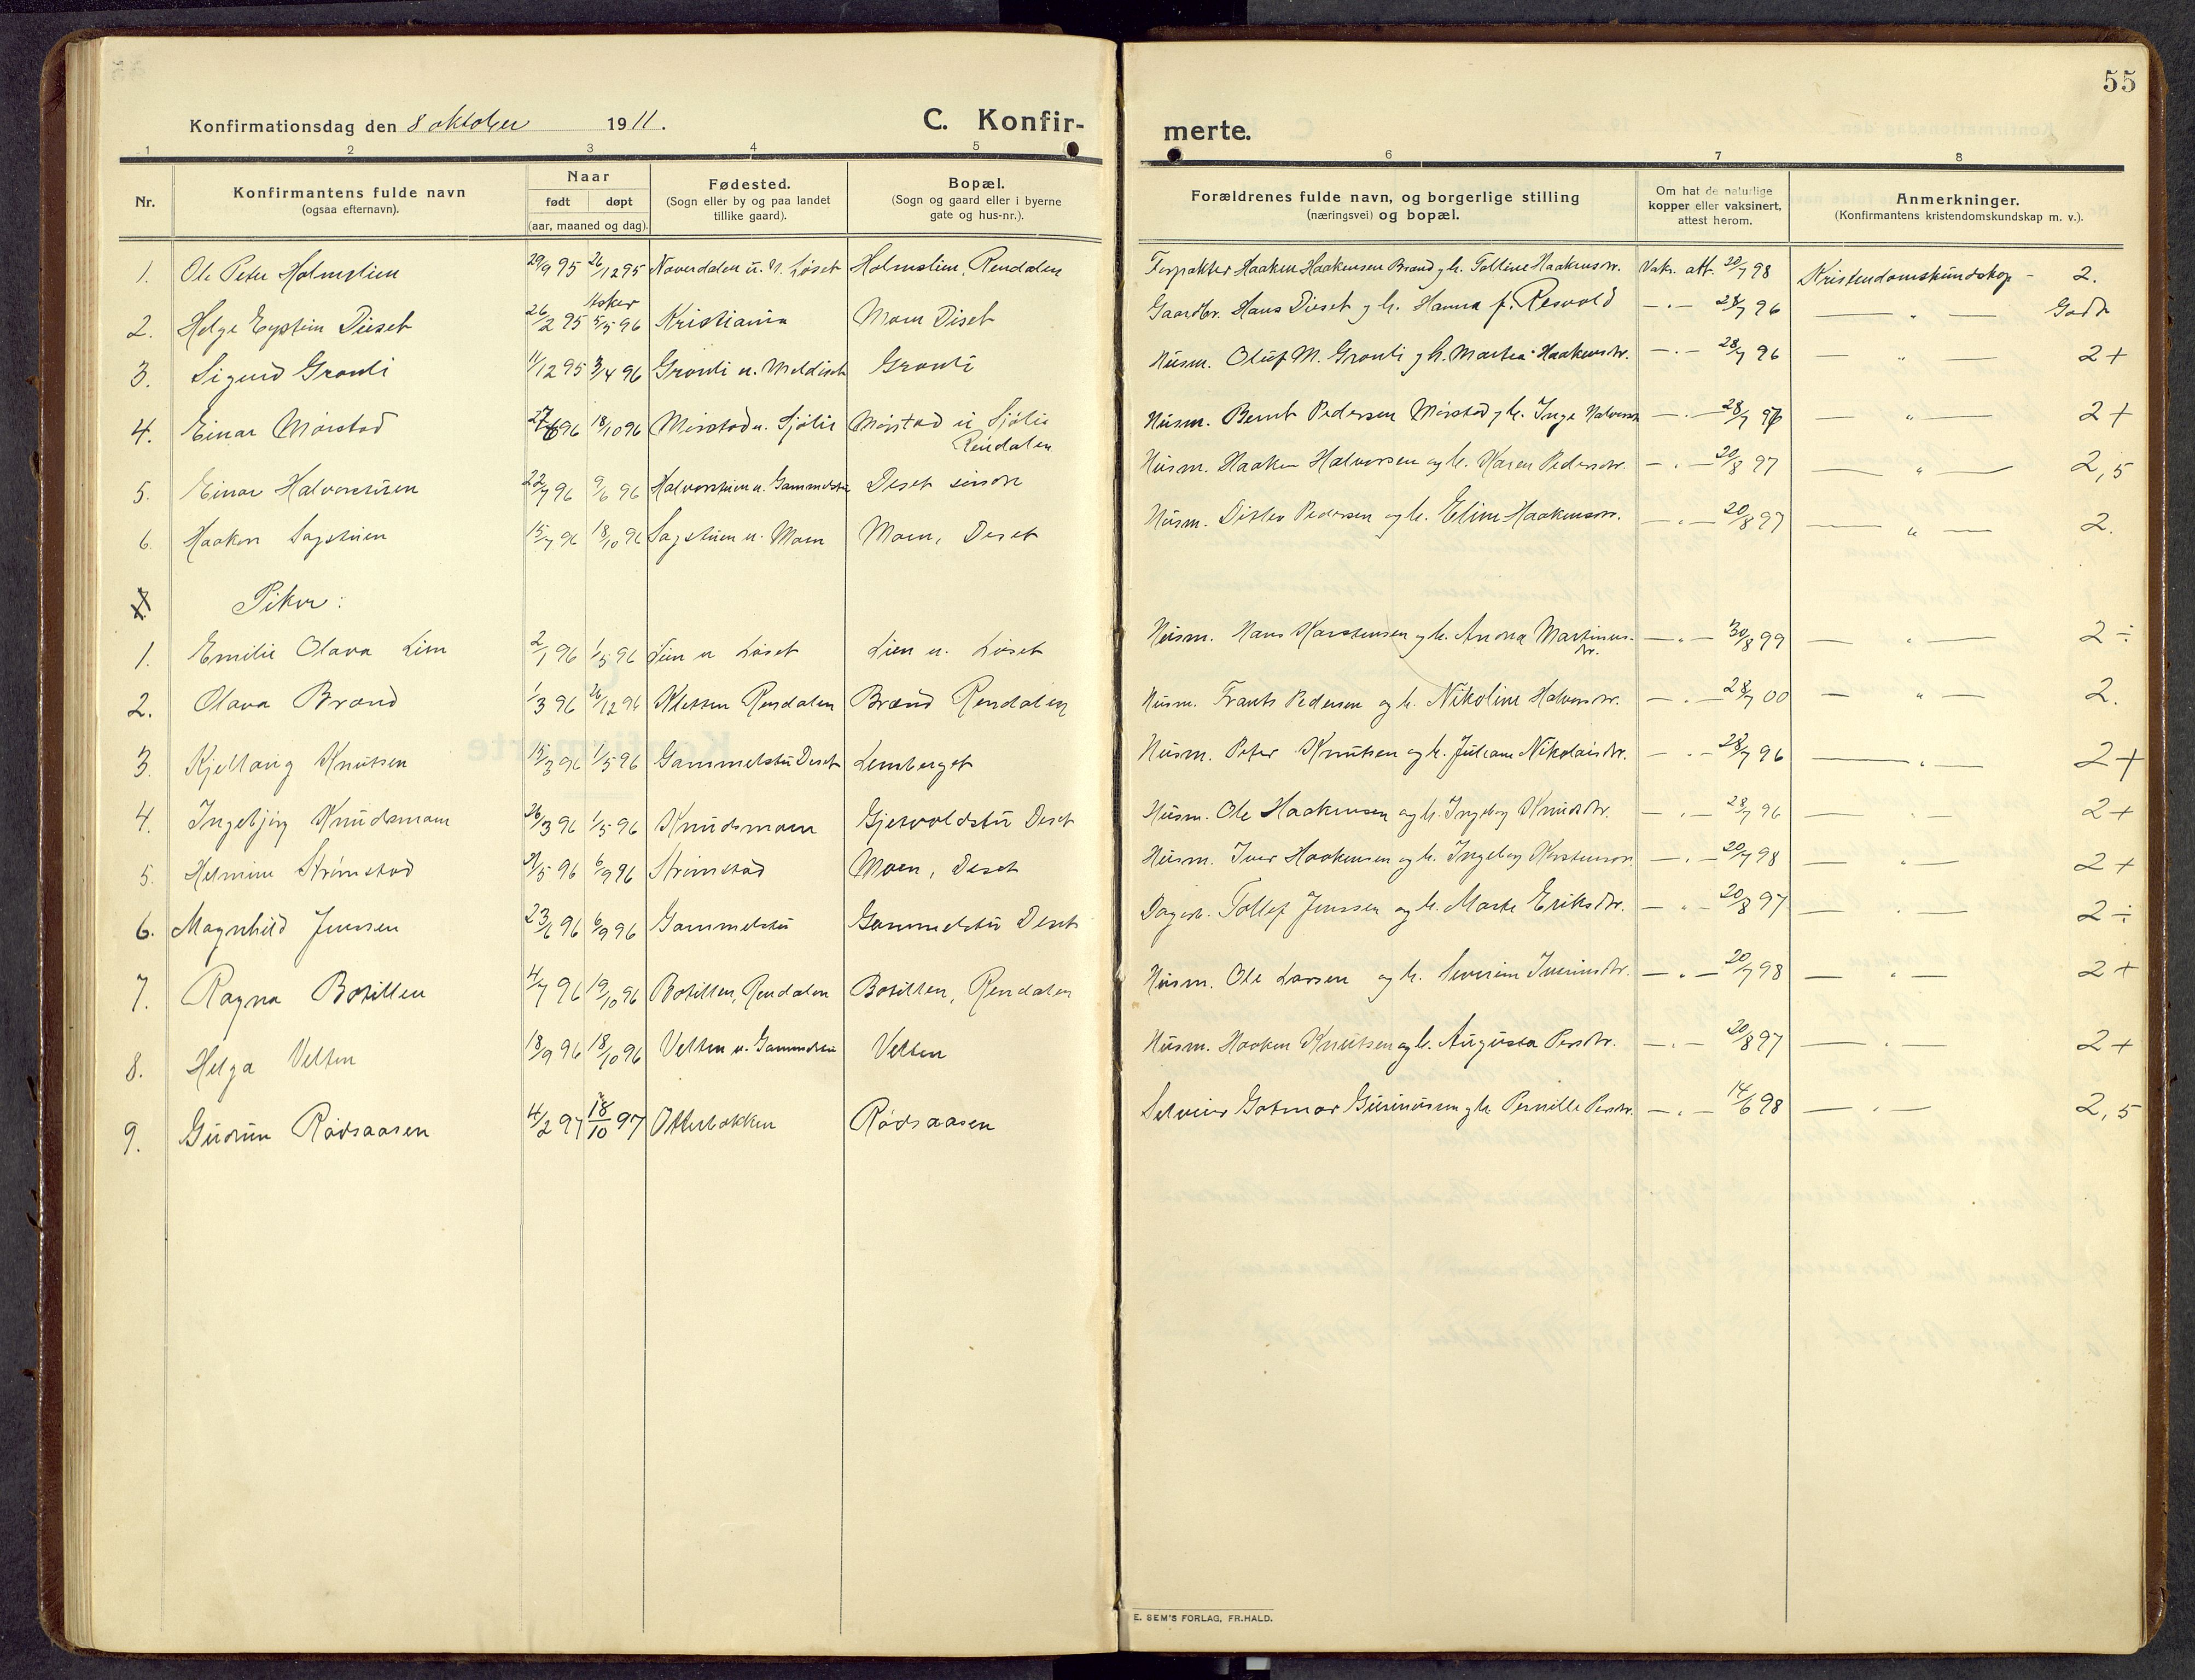 55
Konfirmationsdag den 8 oktober 1911.
C. Konfir-
merte.
1 2 3 4 5 6 7 8
Nr.
Konfirmantens fulde navn
(ogsaa efternavn).
Naar
født døpt
(aar, maaned og dag).
Fødested.
(Sogn eller by og paa landet
tillike gaard).
Bopæl.
(Sogn og gaard eller i byerne
gate og hus-nr.).
Forældrenes fulde navn, og borgerlige stilling
(næringsvei) og bopæl.
Om hat de naturlige
kopper eller vaksinert,
attest herom.
Anmerkninger.
(Konfirmantens kristendomskundskap m. v.).
1. Ole Peter Holmslien 29/9 95 26/12 95 u. N. Løset Holmslien, Rendalen Forpakter Haaken Haakensen Brænd og h. Folline Haakensdr. Vaks. att. 20/7 98 Kristendomskundskap - 2.
Asker
2. Helge Eystein Dieset 26/2 95 5/5 96 Kristiania Moen Diset Gaardbr. Hans Dieset og h. Hanna f. Resvold — . — 28/7 96 — „ — Godt
3. Sigurd Grønli 11/12 95 3/4 96 Grønli u. Grønli Husm. Oluf M. Grønli og h. Martea Haakensdr. — . — 28/7 96 — „ — 2+
4. Einar Mørstad 96 18/10 96 Mørstad u. Sjølie Mørstad u Sjølie Husm. Bernt Pedersen Mørstad og h. Inga — . — 28/7 96 — „ — 2+
Rendalen
5. Einar Halvorstuen 22/7 96 9/6 96 Halvorstuen u. Gammelstu Deset søndre Husm. Haaken Halvorsen og h. Karen Pedersdr. — . — 20/8 97 — „ — 2,5
6. Haakon Sagstuen 15/7 96 18/10 96 Sagstuen u. Moen Moen, Deset Husm. Ditlev Pedersen og h. Eline Haakensdr. — . — 20/8 97 — „ — 2.
Piker:
1. Emilie Olava Lien 2/1 96 1/5 96 Lien u Løset Lien u. Løset Husm. Hans Karstensen og h. Andrea Martinus- — „ — 30/8 99 — „ — 2÷
dr.
2. Olava Brænd 1/3 96 26/12 96 Kletten Rendalen Brænd Rendalen Husm. Frants Pedersen og h. Nikoline Halvorsdr. — . — 28/7 00 — „ — 2.
3. Kjellaug Knutsen 15/3 96 1/5 96 Gammelstu Deset Lemberget Husm. Peter Knutsen og h. Juliane Nikolaisdr. — . — 28/7 96 — „ — 2+
4. Ingebjørg Knudsmoen 26/3 96 1/5 96 Knudsmoen Gjetvoldstu Deset Husm. Ole Haakensen og h. Ingeborg Knudsdr. — . — 28/7 96 — . — 2+
5. Helmine Strømstad 21/5 96 6/9 96 Strømstad Moen, Deset Husm. Iver Haakensen og h. Ingeborg Karstensdr. — . — 20/7 98 — „ — 2+
6. Magnhild Jenssen 23/6 96 6/9 96 Gammelstu Gammelstu Deset Dagarb. Tollef Jenssen og h. Marte Eriksdr. — „ — 20/8 97 — . — 2÷
7. Ragna Botilten 4/7 96 19/10 96 Botilten, Rendalen Botilten, Rendalen Husm. Ole Larsen og h. Severine Iversdr. — „ — 20/7 98 — „ — 2+
8. Helga Velten 18/9 96 18/10 96 Velten u. Gammelstu Velten Husm. Haaken Knutsen og h. Augusta Persdr. — . — 20/8 97 — . — 2+
9. Gudrun Rødsaasen 4/2 97 18/10 97 Otterbakken Rødsaasen Selveier Gotmar Gunerusen og h. Pernille Persdr. — . — 14/6 98 — . — 2,5
E. SEM'S FORLAG, FR.HALD.